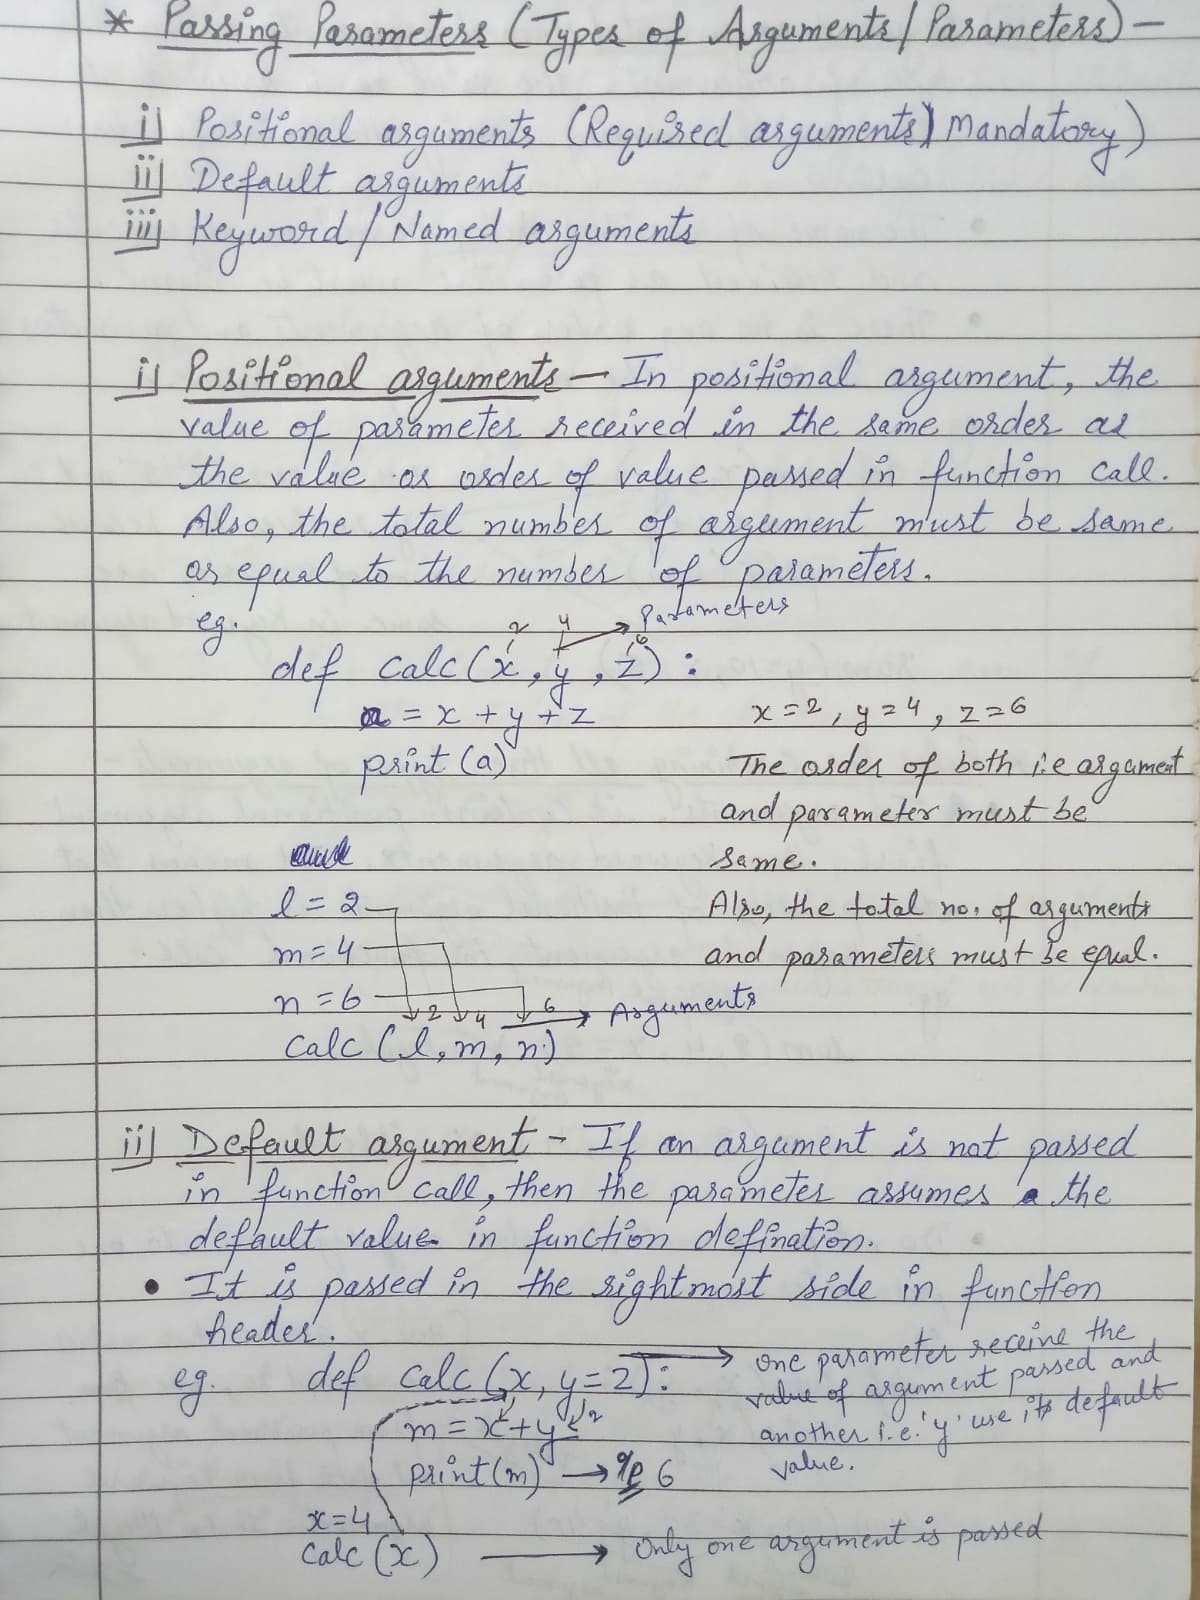 * Passing Parameters (Types of Arguments/Parameters) -
i) Positional arguments (Required arguments) Mandatory)
ii) Default arguments
iii) Keyword / Named arguments
i) Positional arguments - In positional argument, the
value of parameter received in the same order as
the value or order of value passed in function call.
Also, the total number of argument must be same
or equal to the number of parameters.
eg.
2 4 6 → Parameters
def calc(x, y, z):
a = x + y + z
x=2, y=4, z=6
print (a)
The order of both i.e argument
and parameter must be
same.
l = 2
Also, the total no. of arguments
m = 4
and parameters must be equal.
n = 6
2 4 6 → Arguments
calc (l, m, n)
ii) Default argument - If an argument is not passed
in function call, then the parameter assumes the
default value in function defination.
• It is passed in the rightmost side in function
header.
eg. def calc(x, y=2): → One parameter receive the
value of argument passed and
another i.e. 'y' use its default
value.
m = x + y 2
print(m) → o/p 6
x=4
calc (x) → Only one argument is passed